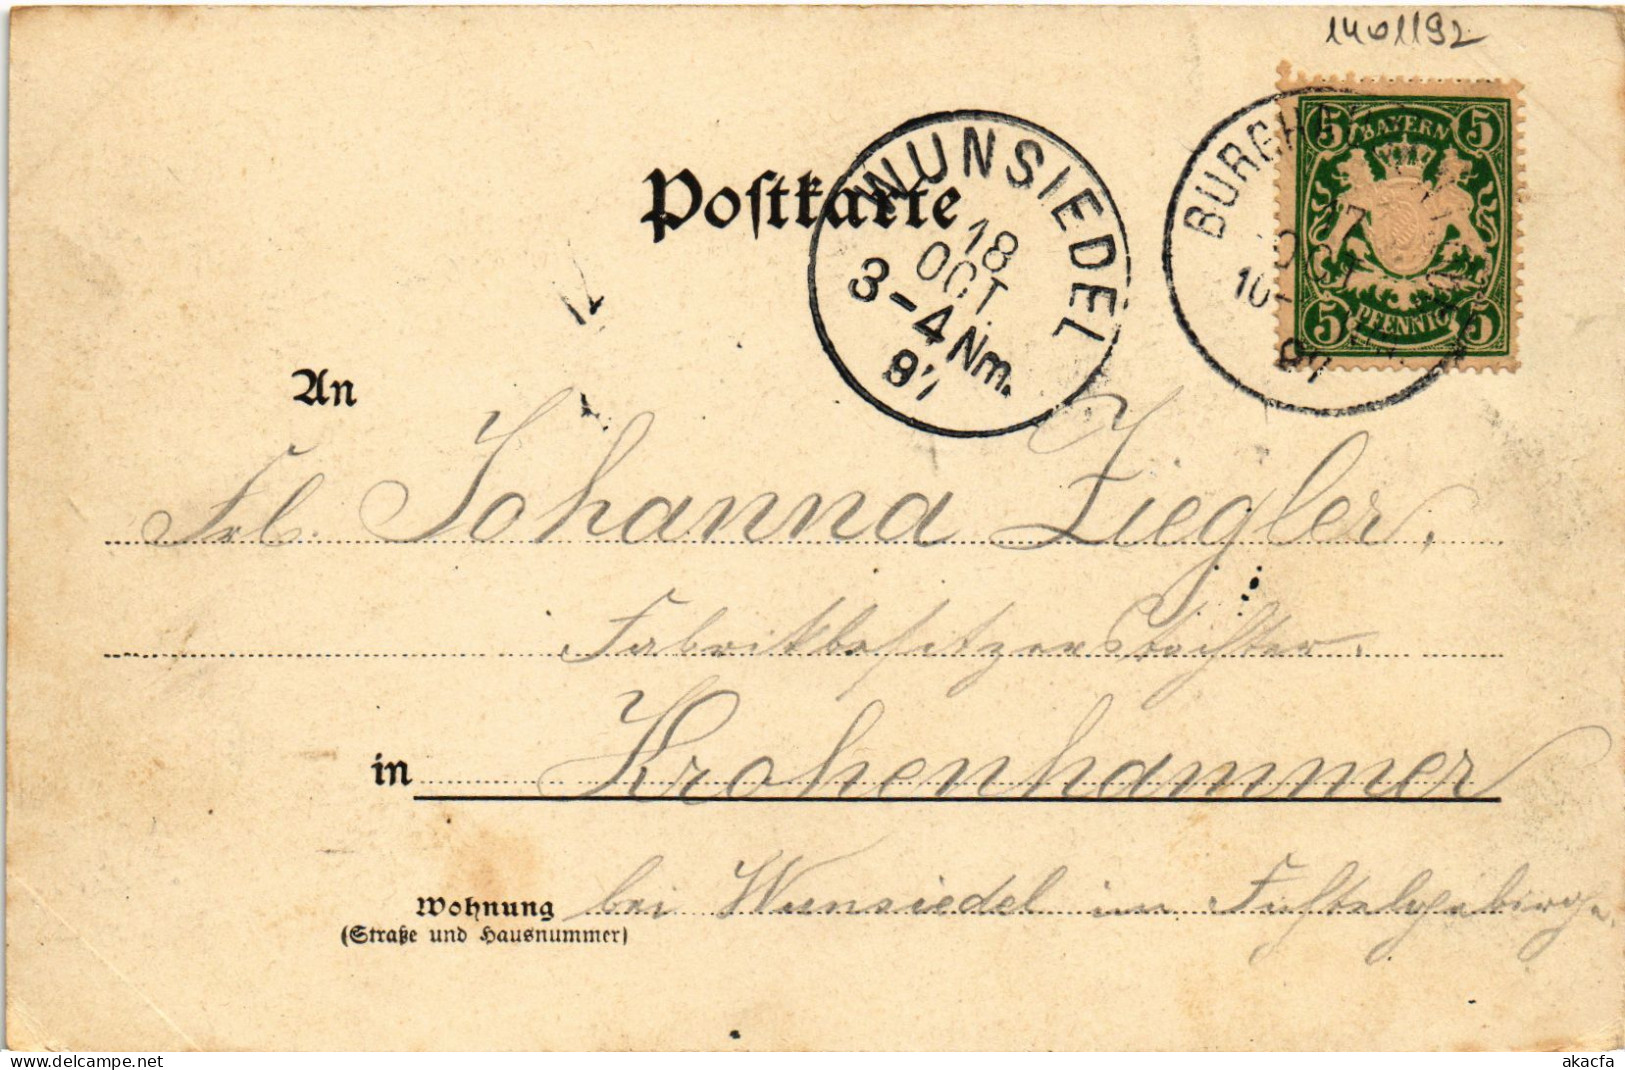 1401192
Postkarte
WUNSIEDEL
18
OCT.
3-4 Nm.
97
BURGHAUSEN
17
OCT
10-
97
5 BAYERN 5
5 PFENNIG 5
An
Frl. Johanna Ziegler,
Fabrikbesitzerstochter.
in Krohenhammer
Wohnung bei Wunsiedel im Fichtelgebirge.
(Straße und Hausnummer)
akacfa
www.delcampe.net